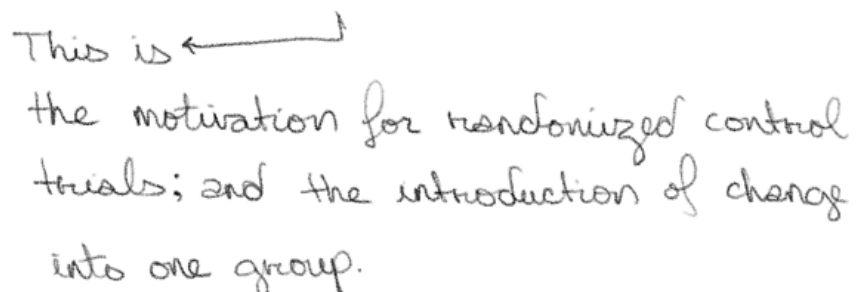 This is
the motivation for randomized control
trials; and the introduction of change
into one group.